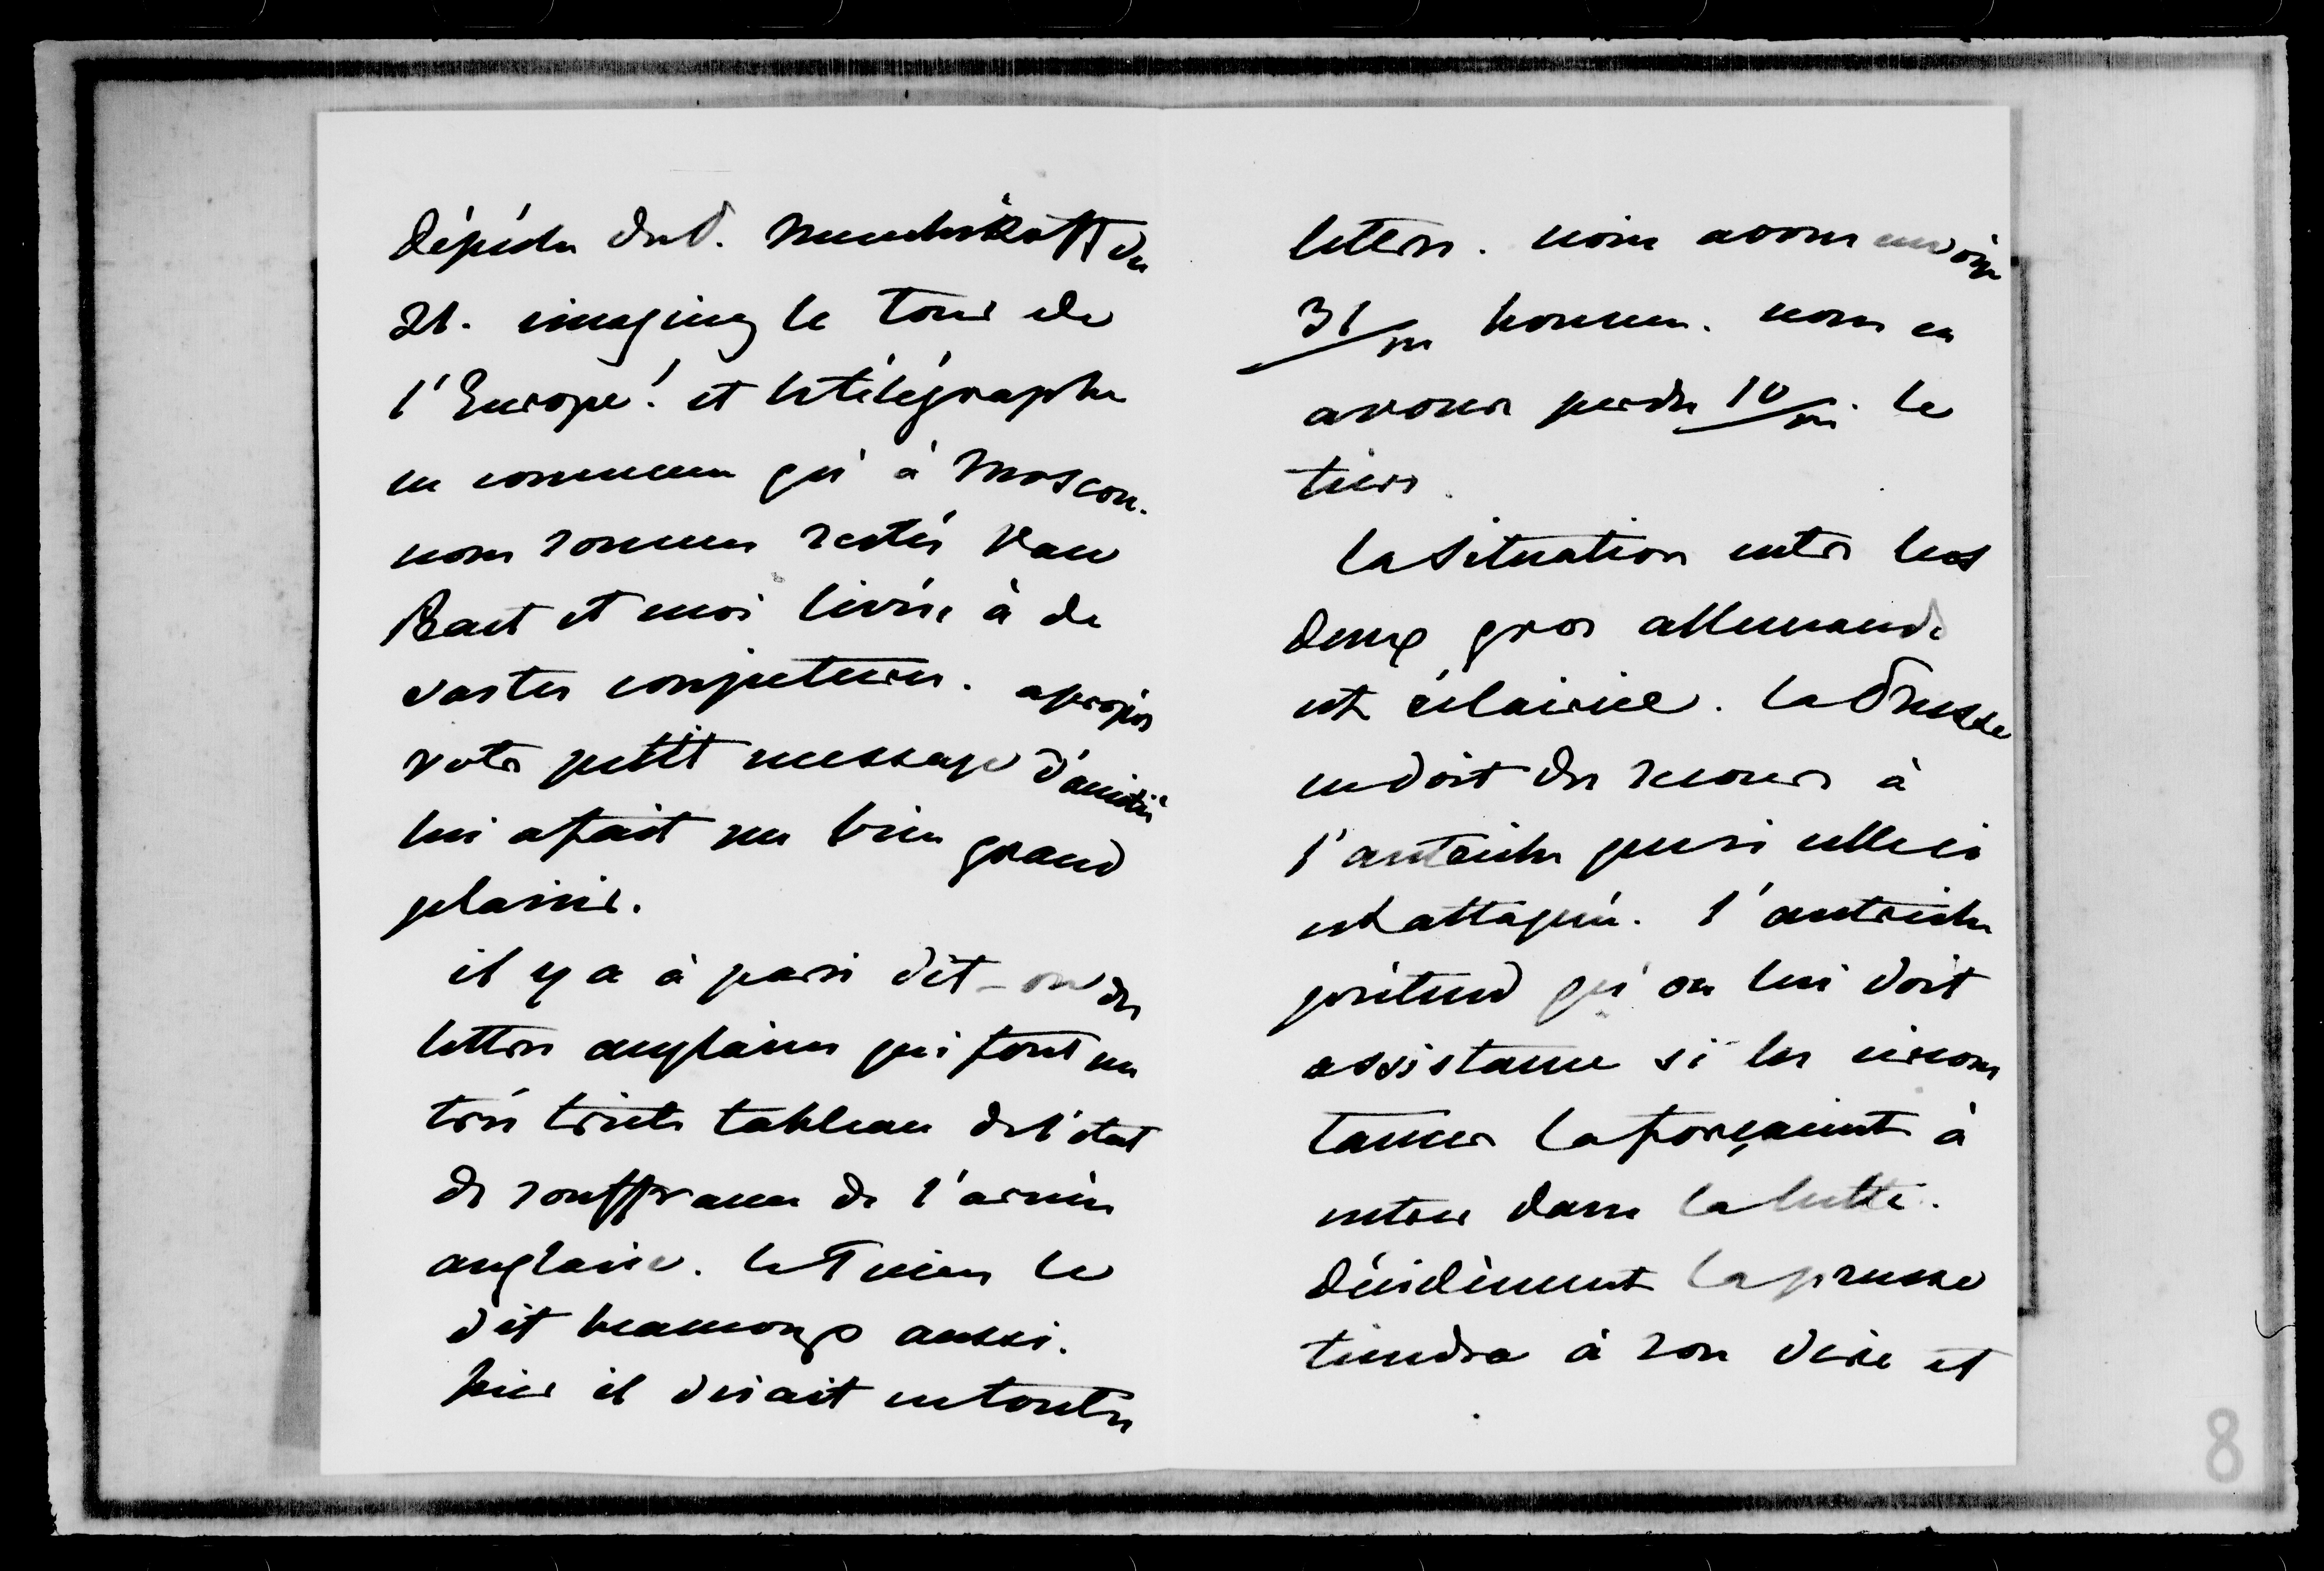 dépêche du P. Menchikoff du
21. imaginez le tour de
l'Europe! et le télégraphe
ne commence qu'à Moscou.
nous sommes restés Van
Praet et moi livrés à de
vastes conjectures. apropos
votre petit message d'amitié
lui a fait un bien grand
plaisir.
il y a à paris dit-on des
lettres anglaises qui font un
très triste tableau de l'état
de souffrance de l'armée
anglaise. le Times le
dit beaucoup aussi.
hier il disait en toutes
lettres. nous avons envoyé
31/m hommes. nous en
avons perdu 10/m. le
tiers.
la situation entre les
deux gros allemands
est éclaircie. la Prusse
ne doit du secours à
l'autriche que si celle ci
est attaquée. l'autriche
prétend qu'on lui doit
assistance si les circons
tances la forçaient à
entrer dans la lutte.
décidément la prusse
tiendra à son dire et
8